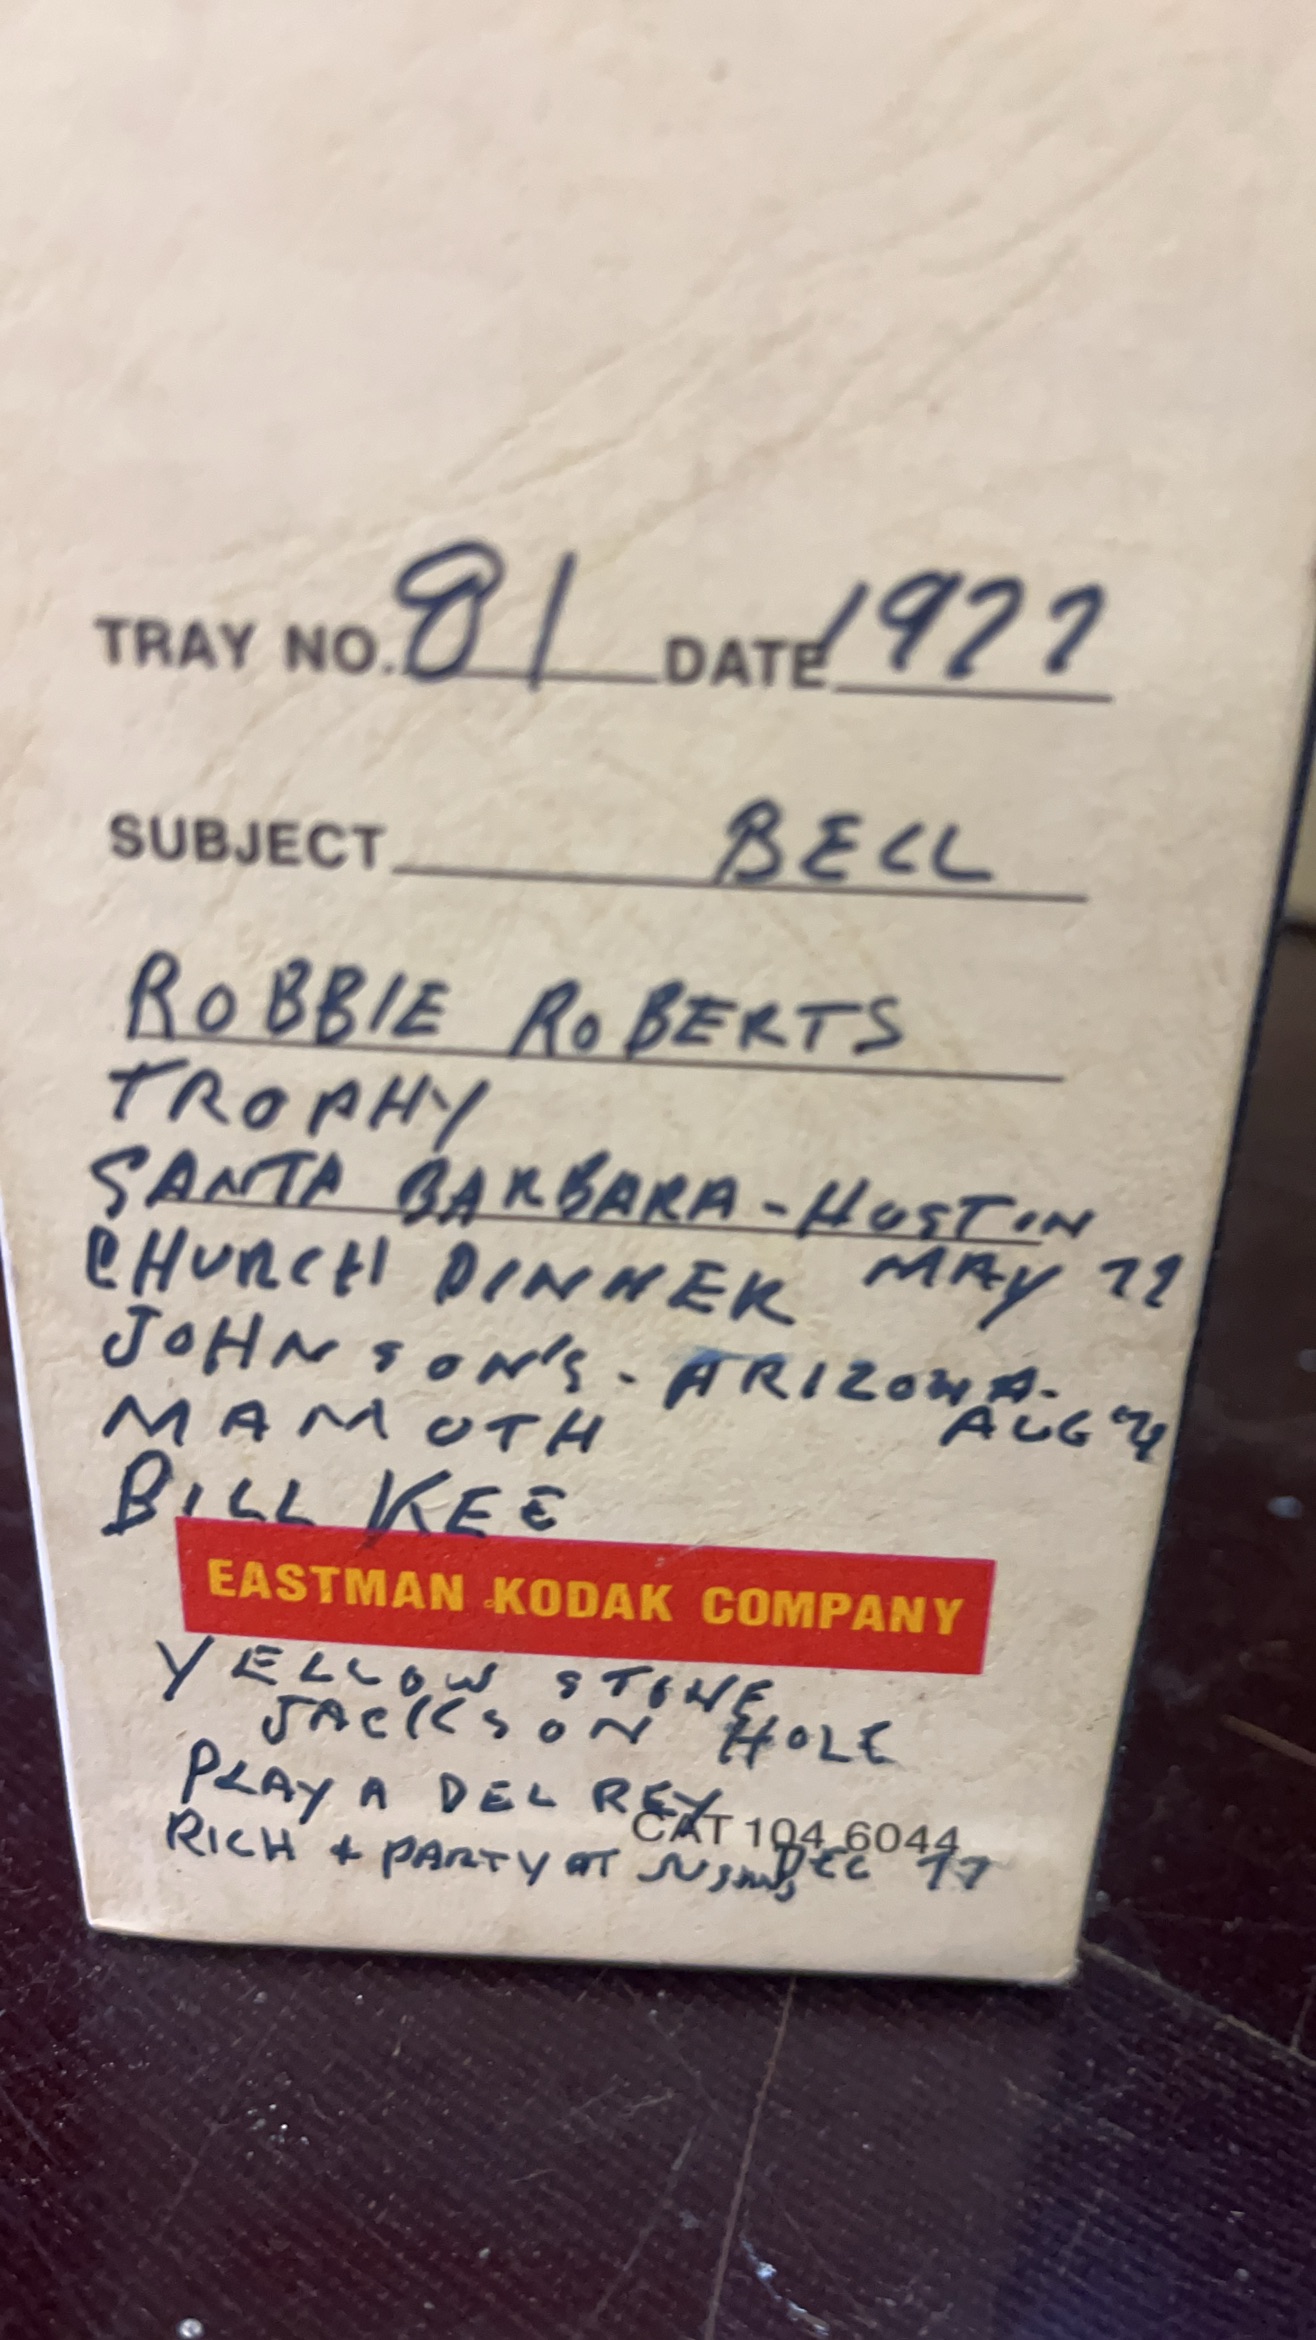 TRAY NO. 81 DATE 1977
SUBJECT BELL
ROBBIE ROBERTS
TROPHY
SANTA BARBARA - HUSTON
CHURCH DINNER MAY 77
JOHNSON'S - ARIZONA -
MAMOTH AUG
BILL KEE
EASTMAN KODAK COMPANY
YELLOW STONE
JACKSON HOLE
PLAYA DEL REY
CAT 104 6044
RICH + PARTY AT DEC 77